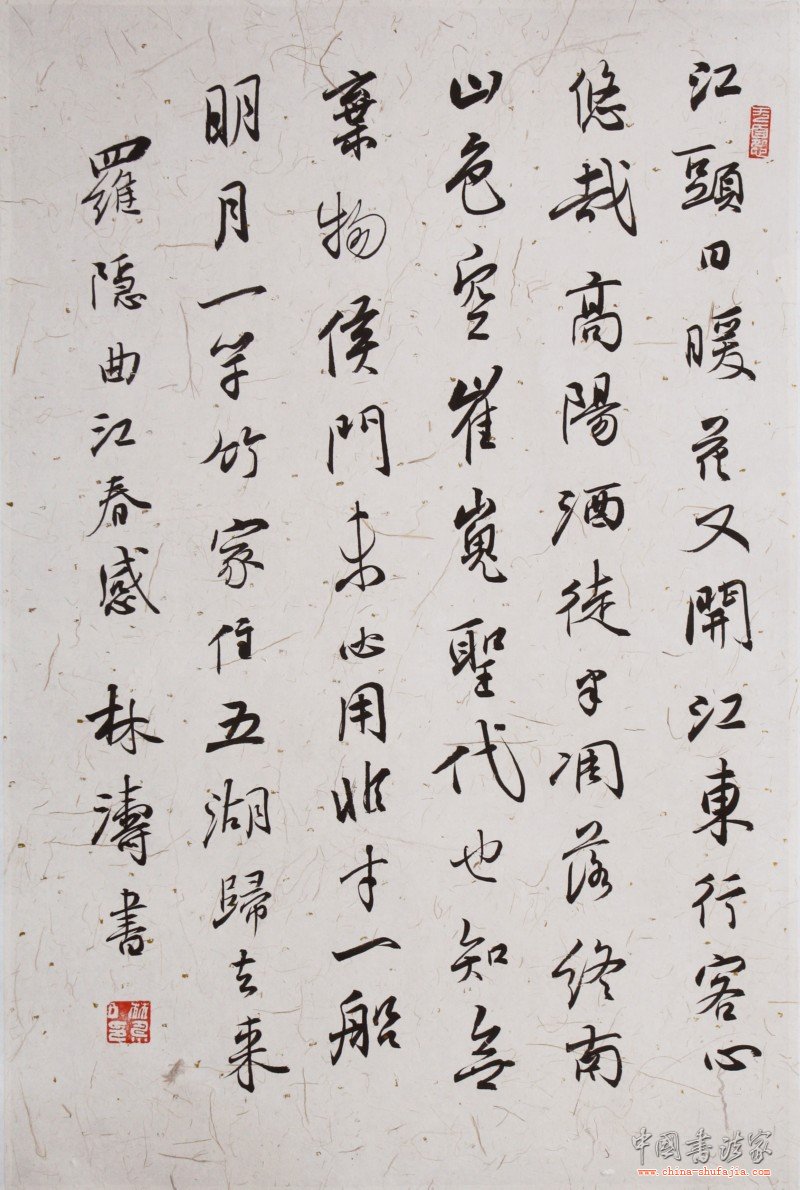 江頭日暖花又開江東行客心
悠哉高陽酒徒半凋落終南
山色空崔嵬聖代也知無
棄物侯門未必用非才一船
明月一竿竹家住五湖歸去来
羅隱曲江春感 林濤書
中國書法家
www.china-shufajia.com